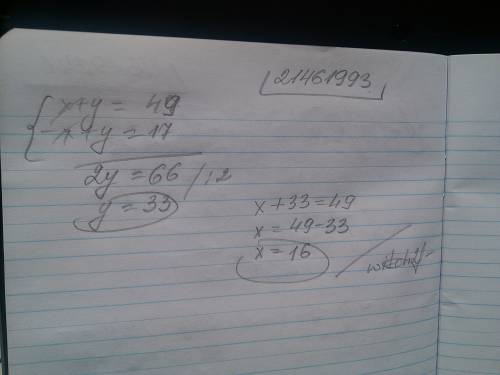 21461993
x+y = 49
-x+y = 17
2y = 66 /:2
y = 33
x+33=49
x = 49-33
x = 16